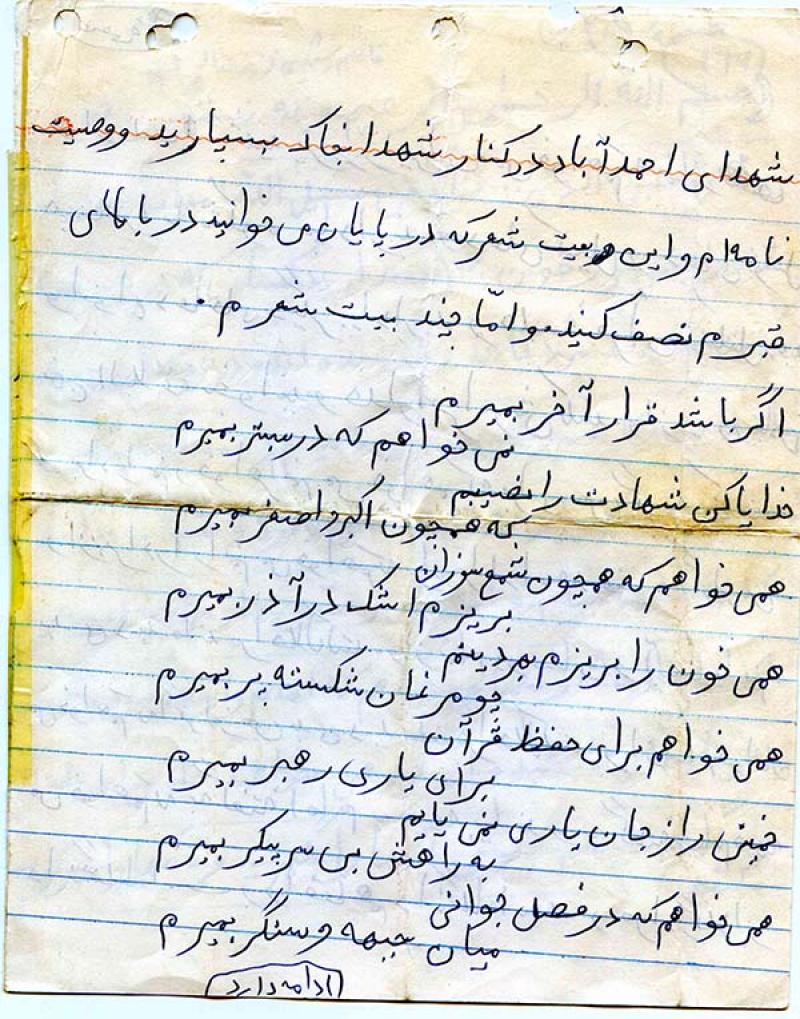 شهدای احمدآباد در کنار شهدا بخاک بسپارید و وصیت
نامه‌ام و این بیت شعر که در پایان می خوانید در بالای
قبرم نصف کنید. و امّا چند بیت شعرم.
اگر باشد قرار آخر بمیرم
نمی خواهم که در بستر بمیرم
خدایا کن شهادت را نصیبم
که همچون اکبر و اصغر بمیرم
همی خواهم که همچون شمع سوزان
بریزم اشک در آذر بمیرم
همی خون را بریزم بهر دینم
چو مرغان شکسته پر بمیرم
همی خواهم برای حفظ قرآن
برای یاری رهبر بمیرم
خمینی را ز جان یاری نمی یایم
به راهش بی سر پیکر بمیرم
همی خواهم که در فصل جوانی
میان جبهه و سنگر بمیرم
(ادامه دارد)